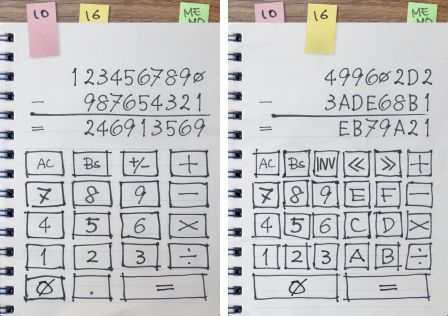 10 16 MEMO
1234567890
− 987654321
= 246913569
AC BS +/− +
7 8 9 −
4 5 6 ×
1 2 3 ÷
0 . =
10 16 MEMO
499602D2
− 3ADE68B1
= EB79A21
AC BS INV ≪ ≫ +
7 8 9 E F −
4 5 6 C D ×
1 2 3 A B ÷
0 =